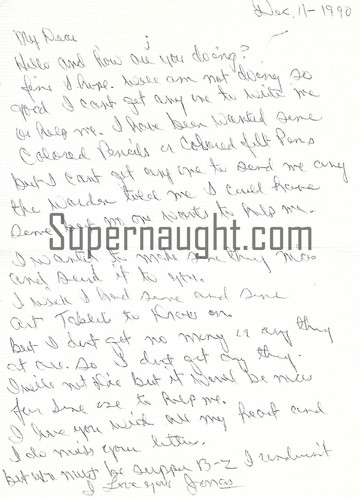 Dec, 11-1990
My Dear ;
Hello and how are you doing?
fine I hope. Well am not doing so
good I cant get any one to with me
or help me. I have been wanted some
Colored Pencils or Colored felt Pens
but I cant get any one to send me any
the warden told me I could have
some but no one wants to help me.
Supernaught.com
I wanted to make some thing nice
and send it to you.
I wish I had some and some
art Tablet to on
but I dont get no money or any thing
at all. So I dont get any thing.
I not but it would be nice
for some one to help me.
I love you with all my heart and
I do miss your letter.
but you must be B-Z I
I Love you